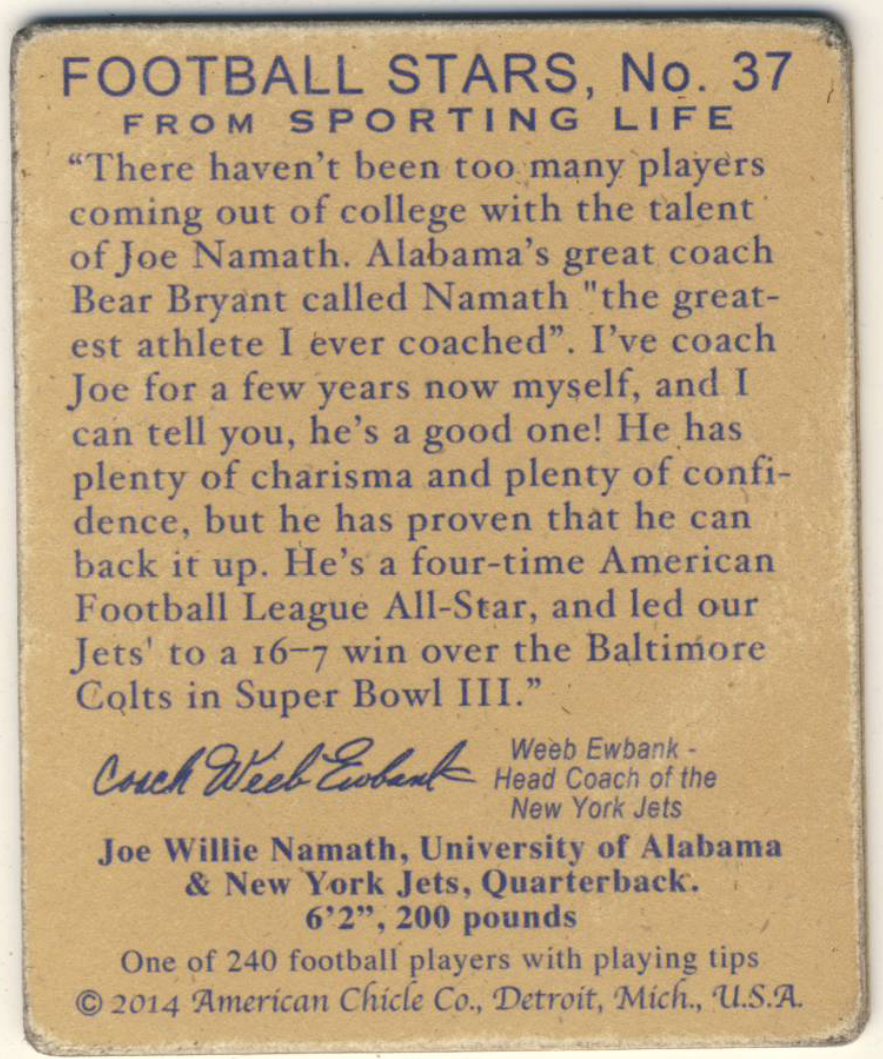 FOOTBALL STARS, No. 37
FROM SPORTING LIFE
“There haven't been too many players
coming out of college with the talent
of Joe Namath. Alabama's great coach
Bear Bryant called Namath "the great-
est athlete I ever coached”. I've coach
Joe for a few years now myself, and I
can tell you, he's a good one! He has
plenty of charisma and plenty of confi-
dence, but he has proven that he can
back it up. He's a four-time American
Football League All-Star, and led our
Jets' to a 16–7 win over the Baltimore
Colts in Super Bowl III.”
Coach Weeb Ewbank
Weeb Ewbank -
Head Coach of the
New York Jets
Joe Willie Namath, University of Alabama
& New York Jets, Quarterback.
6’2”, 200 pounds
One of 240 football players with playing tips
© 2014 American Chicle Co., Detroit, Mich., U.S.A.